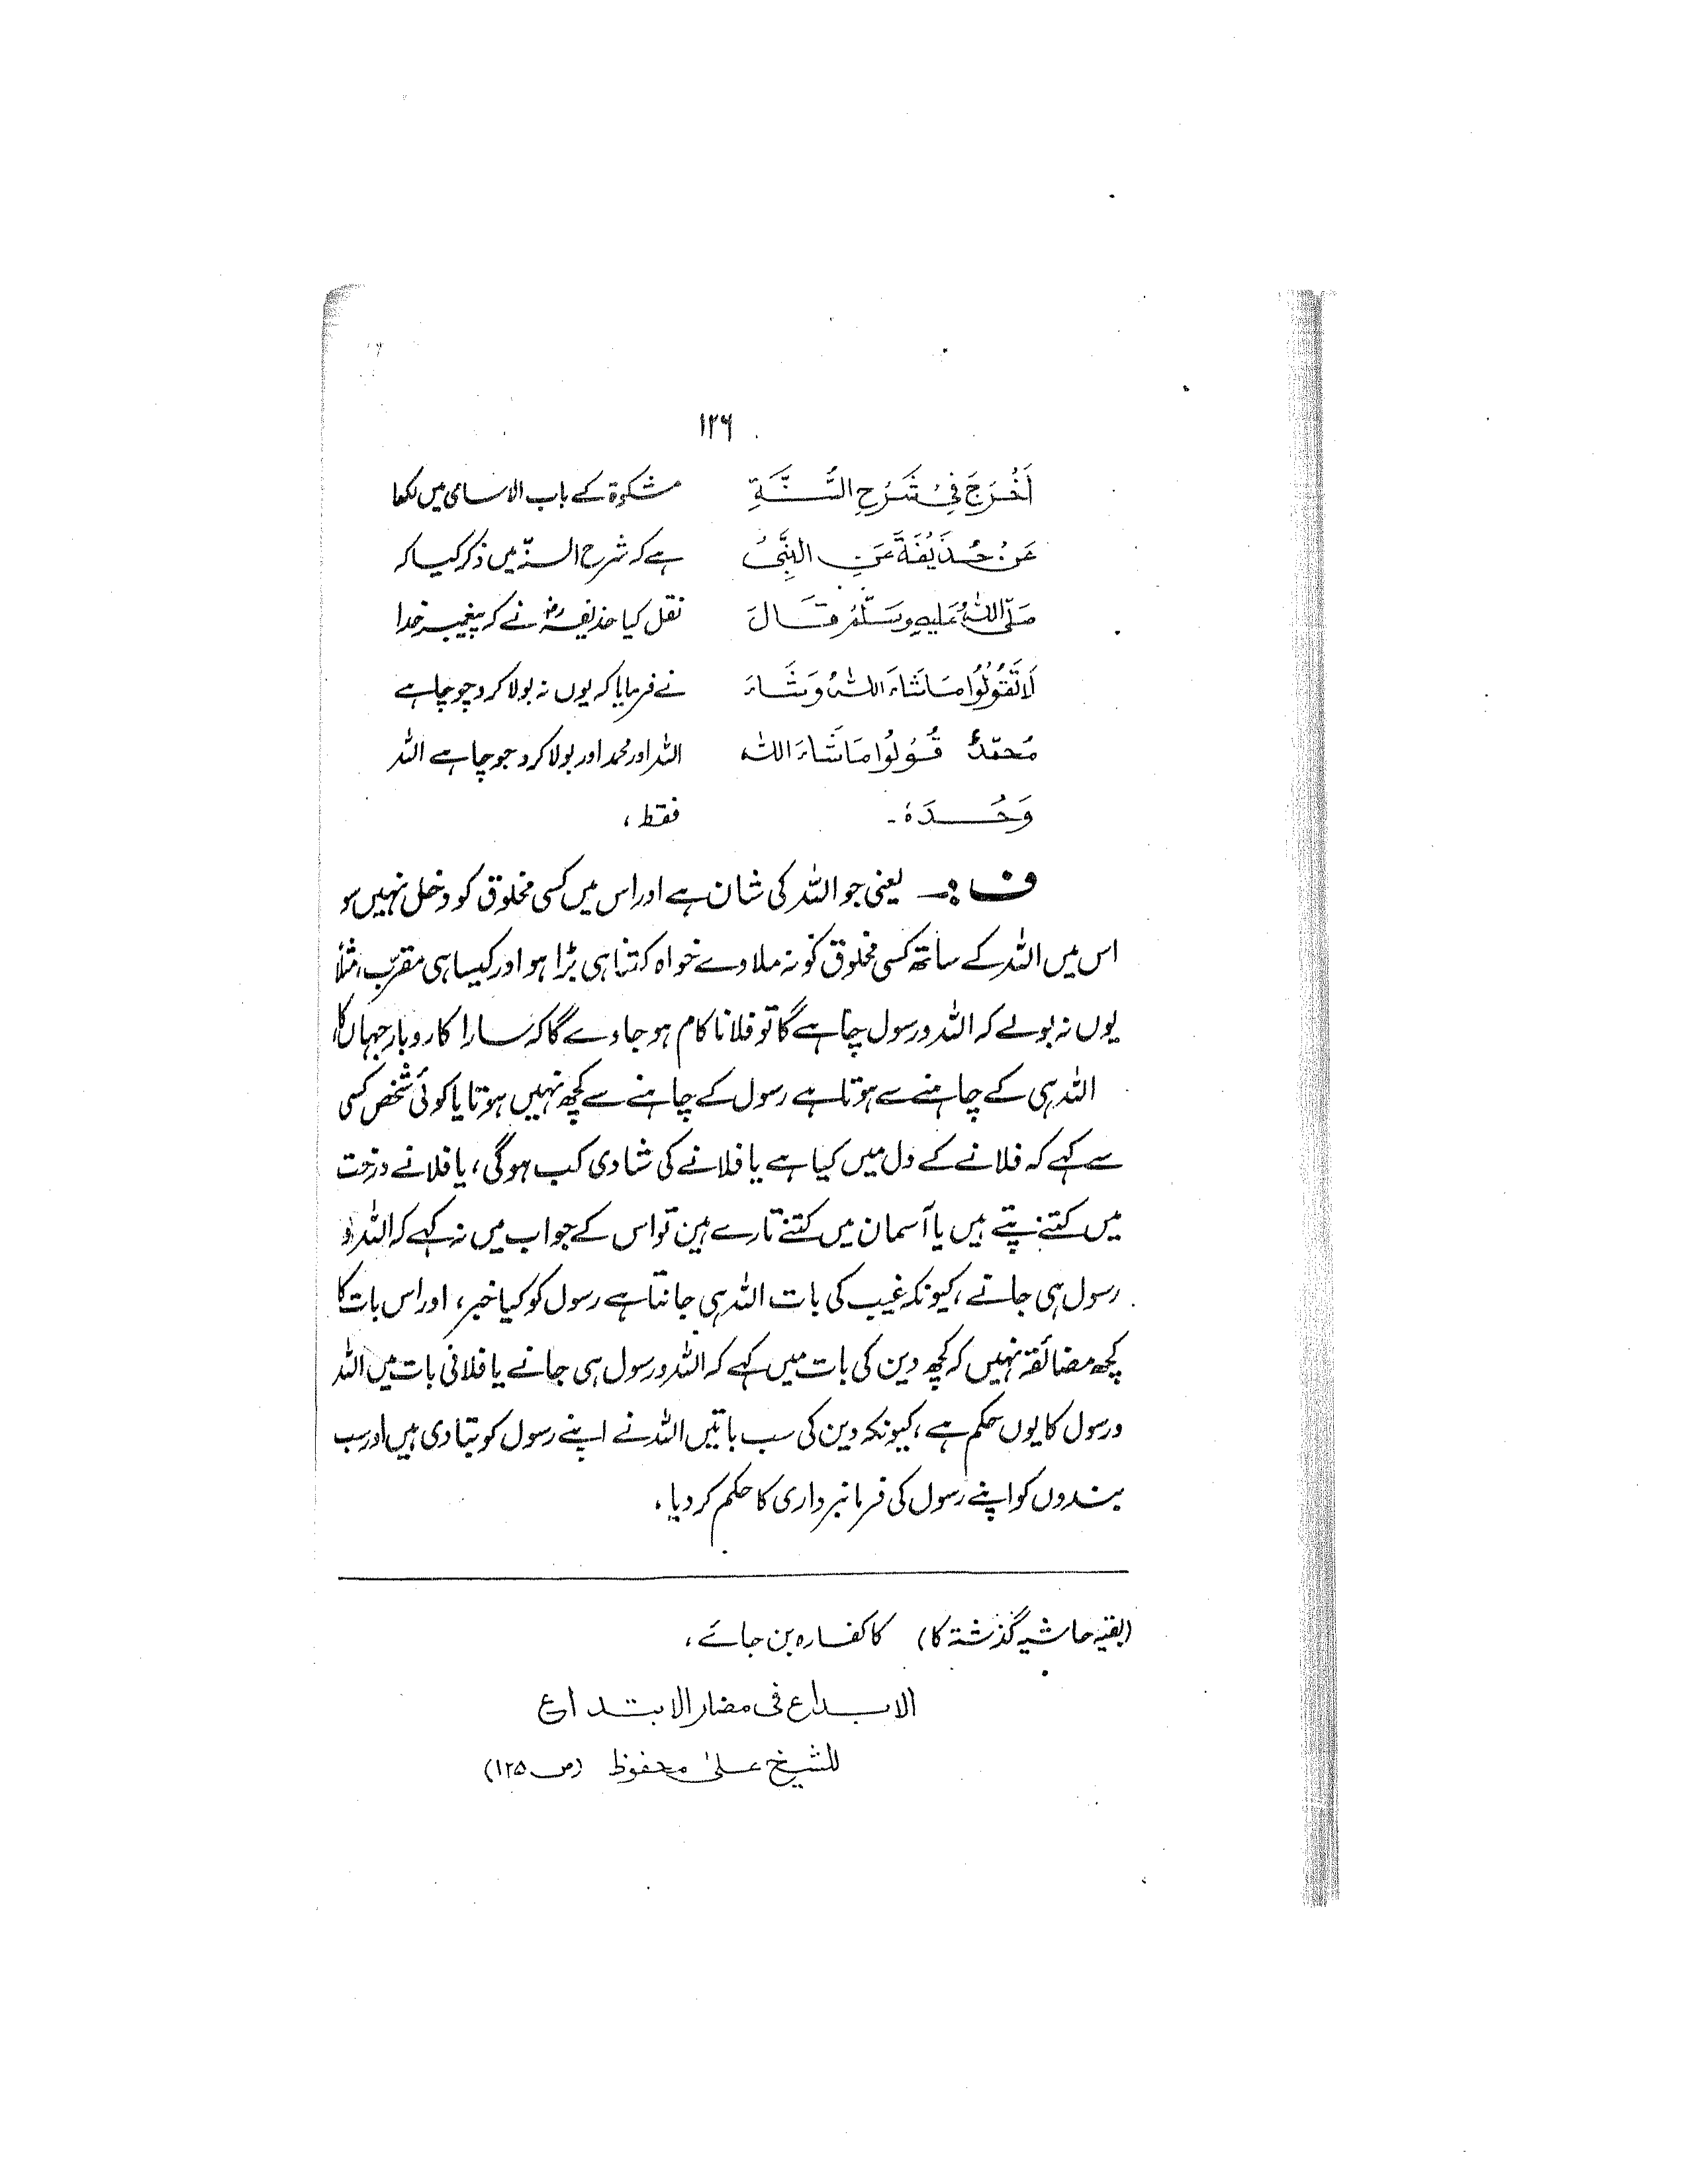 ۱۲۶
اَخْرَجَ فِیْ شَرْحِ السُّنَّةِ
عَنْ حُذَیْفَةَ عَنِ النَّبِیِّ
صَلَّی اللّٰهُ عَلَیهِ وَسَلَّمَ قَالَ
لَا تَقُوْلُوْا مَا شَاءَ اللّٰهُ وَشَاءَ
مُحَمَّدٌ قُوْلُوْا مَا شَاءَ اللّٰهُ
وَحْدَهٗ۔
مشکوٰۃ کے باب الاسامی میں لکھا
ہے کہ شرح السنّہ میں ذکر کیا کہ
نقل کیا حذیفہؓ نے کہ پیغمبر خدا
نے فرمایا کہ یوں نہ بولا کرو جو چاہے
اللہ اور محمد اور بولا کرو جو چاہے اللہ
فقط،
ف :۔ یعنی جو اللہ کی شان ہے اور اس میں کسی مخلوق کو دخل نہیں سو
اس میں اللہ کے ساتھ کسی مخلوق کو نہ ملاوے خواہ کتنا ہی بڑا ہو اور کیسا ہی مقرّب، مثلاً
یوں نہ بولے کہ اللہ و رسول چاہے گا تو فلانا کام ہو جاوے گا کہ سارا کاروبار جہاں کا
اللہ ہی کے چاہنے سے ہوتا ہے رسول کے چاہنے سے کچھ نہیں ہوتا یا کوئی شخص کسی
سے کہے کہ فلانے کے دل میں کیا ہے یا فلانے کی شادی کب ہوگی، یا فلانے درخت
میں کتنے پتے ہیں یا آسمان میں کتنے تارے ہین تو اس کے جواب میں نہ کہے کہ اللہ و
رسول ہی جانے، کیونکہ غیب کی بات اللہ ہی جانتا ہے رسول کو کیا خبر، اور اس بات کا
کچھ مضائقہ نہیں کہ کچھ دین کی بات میں کہے کہ اللہ و رسول ہی جانے یا فلانی بات میں اللہ
و رسول کا یوں حکم ہے، کیونکہ دین کی سب باتیں اللہ نے اپنے رسول کو بتا دی ہیں اور سب
بندوں کو اپنے رسول کی فرمانبرداری کا حکم کر دیا،
(بقیہ حاشیہ گذشتہ کا) کا کفارہ بن جائے،
الابداع فی مضار الابتداع
للشیخ علیٰ محفوظ (ص ۱۲۵)